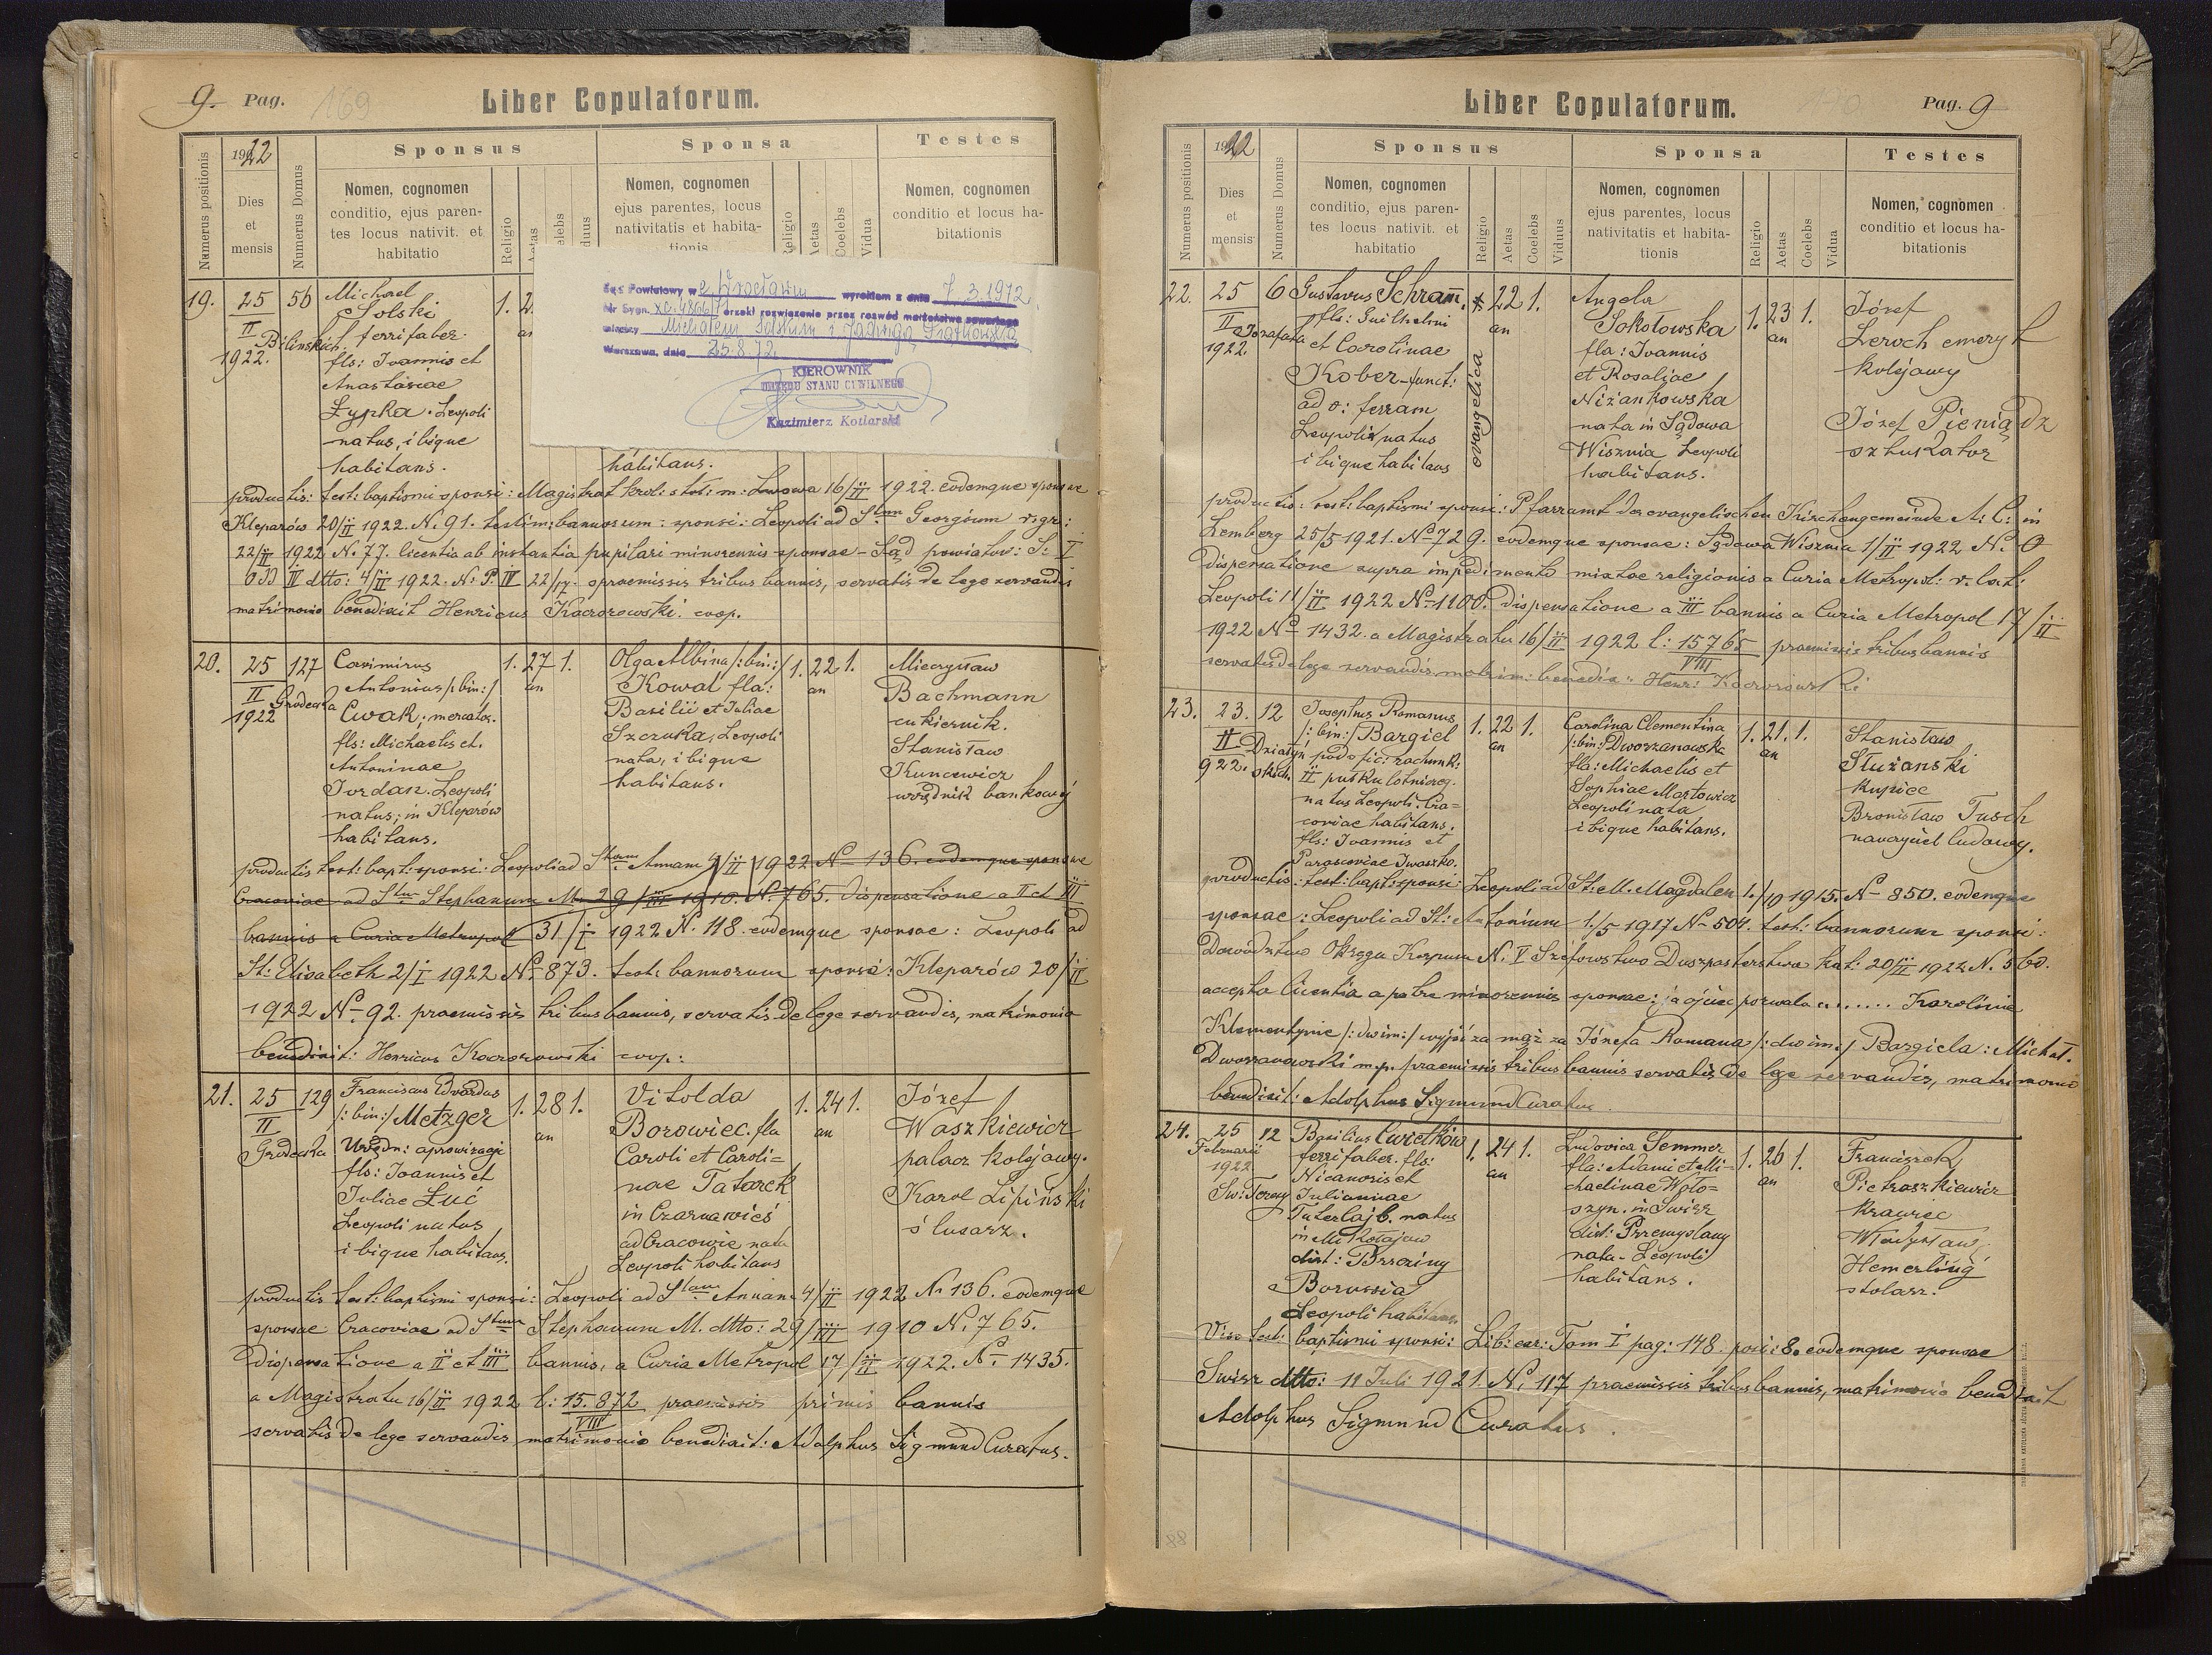 9. Pag. 169
Liber Copulatorum.
Numerus positionis
1922
Dies
et
mensis
Numerus Domus
Sponsus
Nomen, cognomen
conditio, ejus paren-
tes locus nativit. et
habitatio
Religio
Sponsa
Nomen, cognomen
ejus parentes, locus
nativitatis et habita-
tionis
Aetas
Coelebs
Vidua
Testes
Nomen, cognomen
conditio et locus ha-
bitationis
19. 25 56
II
Bilinskich
1922.
Michael
Solski
ferrifaber
fls: Joannis et
Anastasiae
Łypka. Leopoli
natus, ibique
habitans.
1.
Sąd Powiatowy we Wrocławiu wyrokiem z dnia 7.3.1972
Nr Sygn. orzekł rozwiązanie przez rozwód małżeństwa zawartego
między Michałem Solskim i Jadwigą
Warszawa, dnia 25.8.72
KIEROWNIK
URZĘDU STANU CYWILNEGO
Kazimierz Kotlarski
habitans.
productis: test: baptismi sponsi: Magistrat król: stoł: m: Lwowa 16/II 1922. eodemque sponsae
Kleparów 20/II 1922. N. 91. testim: bannorum: sponsi: Leopoli ad Stum Georgium r. gr:
22/II 1922 N. 77. licentia ab instantia pupilari minorennis sponsae - Sąd powiatow: S: I
Od IV dtto: 4/II 1922. N. P. IV 22/17. praemissis tribus bannis, servatis de lege servandis
matrimonio benedixit Henricus Kaczorowski. coop.
20. 25 127
II
Grodecka
1922
Casimirus
Antonius /: bin: /
Cwak; mercator.
fls: Michaelis et.
Antoninae
Jordan. Leopoli
natus; in Kleparów
habitans.
1. 27 1.
an
Olga Albina /: bin: /
Kowal fla:
Basilii et Juliae
Szczuka, Leopoli
nata, ibique
habitans.
1. 22 1.
an
Mieczysław
Bachmann
cukiernik.
Stanisław
Kuncewicz
urzędnik bankowy
productis test: bapt: sponsi: Leopoli ad Stam Annam 4/II 1922 N- 136. eodemque sponsae
Cracoviae ad Stum Stephanum M. 29/III 1910. N. 765. dispensatione a II et III
bannis a Curia Metropol 31/I 1922 N. 118. eodemque sponsae: Leopoli ad
St: Elisabeth 2/I 1922 N- 873. test: bannorum sponsi: Kleparów 20/II
1922 N- 92. praemissis tribus bannis, servatis de lege servandis, matrimonio
benedixit: Henricus Kaczorowski coop:
21. 25 129
II
Grodecka
Franciscus Edvardus
/: bin: / Metzger
Urzędn: aprowizacji
fls: Joannis et
Juliae Łuć
Leopoli natus
ibique habitans.
1. 28 1.
an
Vitolda
Borowiec. fla
Caroli et Caroli=
nae Tatarek
in Czarnawieś
ad Cracowie nata
Leopoli habitans
1. 24 1.
an
Józef
Waszkiewicz
palacz kolejowy.
Karol Lipiński
ślusarz.
productis test: baptismi sponsi: Leopoli ad Stam Annam 4/II 1922 N. 136. eodemque
sponsae Cracoviae ad Stum Stephanum M. dtto: 29/III 1910 N. 765.
Dispensatione a II et III bannis, a Curia Metropol 17/II 1922. N. 1435.
a Magistratu 16/II 1922 l: 15.872/VIII praemissis primis bannis
servatis de lege servandis matrimonio benedixit: Adolphus Sigmund Curatus.
Liber Copulatorum.
170 Pag. 9
Numerus positionis
1922
Dies
et
mensis
Numerus Domus
Sponsus
Nomen, cognomen
conditio, ejus paren-
tes locus nativit. et
habitatio
Religio
Aetas
Coelebs
Viduus
Sponsa
Nomen, cognomen
ejus parentes, locus
nativitatis et habita-
tionis
Religio
Aetas
Coelebs
Vidua
Testes
Nomen, cognomen
conditio et locus ha-
bitationis
22. 25 6
II
Jozafata
1922.
Gustavus Schram̄.
fls: Guilhelmi
et Carolinae
Kober - funct:
ad o: ferram
Leopoli natus
ibique habitans
evangelica
22 1.
an
Angela
Sokołowska
fla: Joannis
et Rosaliae
Niżankowska
nata in Sądowa
Wisznia Leopoli
habitans.
1. 23 1.
an
Józef
Leroch emeryt
kolejowy
Józef Pieniądz
sztukator
productis: test: baptismi sponsi: Pfarramt der evangelischen Kirchengemeinde A: C: in
Lemberg 25/5 1921. N- 729. eodemque sponsae: Sądowa Wisznia 1/II 1922 N. 0
Dispensatione supra impedimento mixtae religionis a Curia Metropol: r. lat:
Leopoli 11/II 1922 N- 1100. dispensatione a III bannis a Curia Metropol 17/II
1922 N- 1432. a Magistratu 16/II 1922 l: 15765/VIII praemissis tribus bannis
servatis de lege servandis matrim: benedix: Henr: Kaczorowski
23. 23. 12
II Działyń
922. skich.
Josephus Romanus
/: bin: / Bargiel
podofic: rachunk:
II pułku lotniczeg.
natus Leopoli. Cra=
coviae habitans.
fls: Joannis et
Parascoviae Iwaszko.
1. 22 1.
an
Carolina Clementina
/: bin: / Dworzanowska
fla: Michaelis et
Sophiae Martowicz
Leopoli nata
ibique habitans.
1. 21. 1.
an
Stanisław
Służanski
kupiec
Bronisław Tusch
nauczyciel ludowy.
productis: test: bapt: sponsi: Leopoli ad St: M. Magdalen 1./10 1915. N- 850. eodemque
sponsae: Leopoli ad St: Antonium 1./5 1917 N- 504. test: bannorum sponsi:
Dowództwo Okręgu Korpusu N. V Szefowstwo Duszpasterstwa kat: 20/II 1922 N. 560.
accepta licentia a patre minorennis sponsae: ja ojciec pozwalam ...... Karolinie
Klementynie /: dwim: / wyjść za mąż za Józefa Romana /: dwim: / Bargiela: Michał.
Dworzanowski mp. praemissis tribus bannis servatis de lege servandis, matrimonio
benedixit: Adolphus Sigmund Curatus
24. 25 12
Februarii
1922
Św: Teresy
Basilius Cwietkow
ferrifaber. fls:
Nicanoris et
Juliannae
natus
in Mikołajow
dist: Brzeziny
Borussia
Leopoli habitans.
1. 24 1.
an
Ludovica Semmer
fla: Adami et Mi=
chaelinae Woło=
szyn. in Świrz
dist: Przemyślany
nata - Leopoli
habitans.
1. 26 1.
an
Franciszek
Pietraszkiewicz
krawiec
Władysław
Hemerling
stolarz.
Viso test: baptismi sponsi: Lib: Tom I pag: 148. posi: 8. eodemque sponsae
Świrz dtto: 11 Juli 1921. N. 117 praemissis tribus bannis, matrimonio benedixit
Adolphus Sigmund Curatus.
88